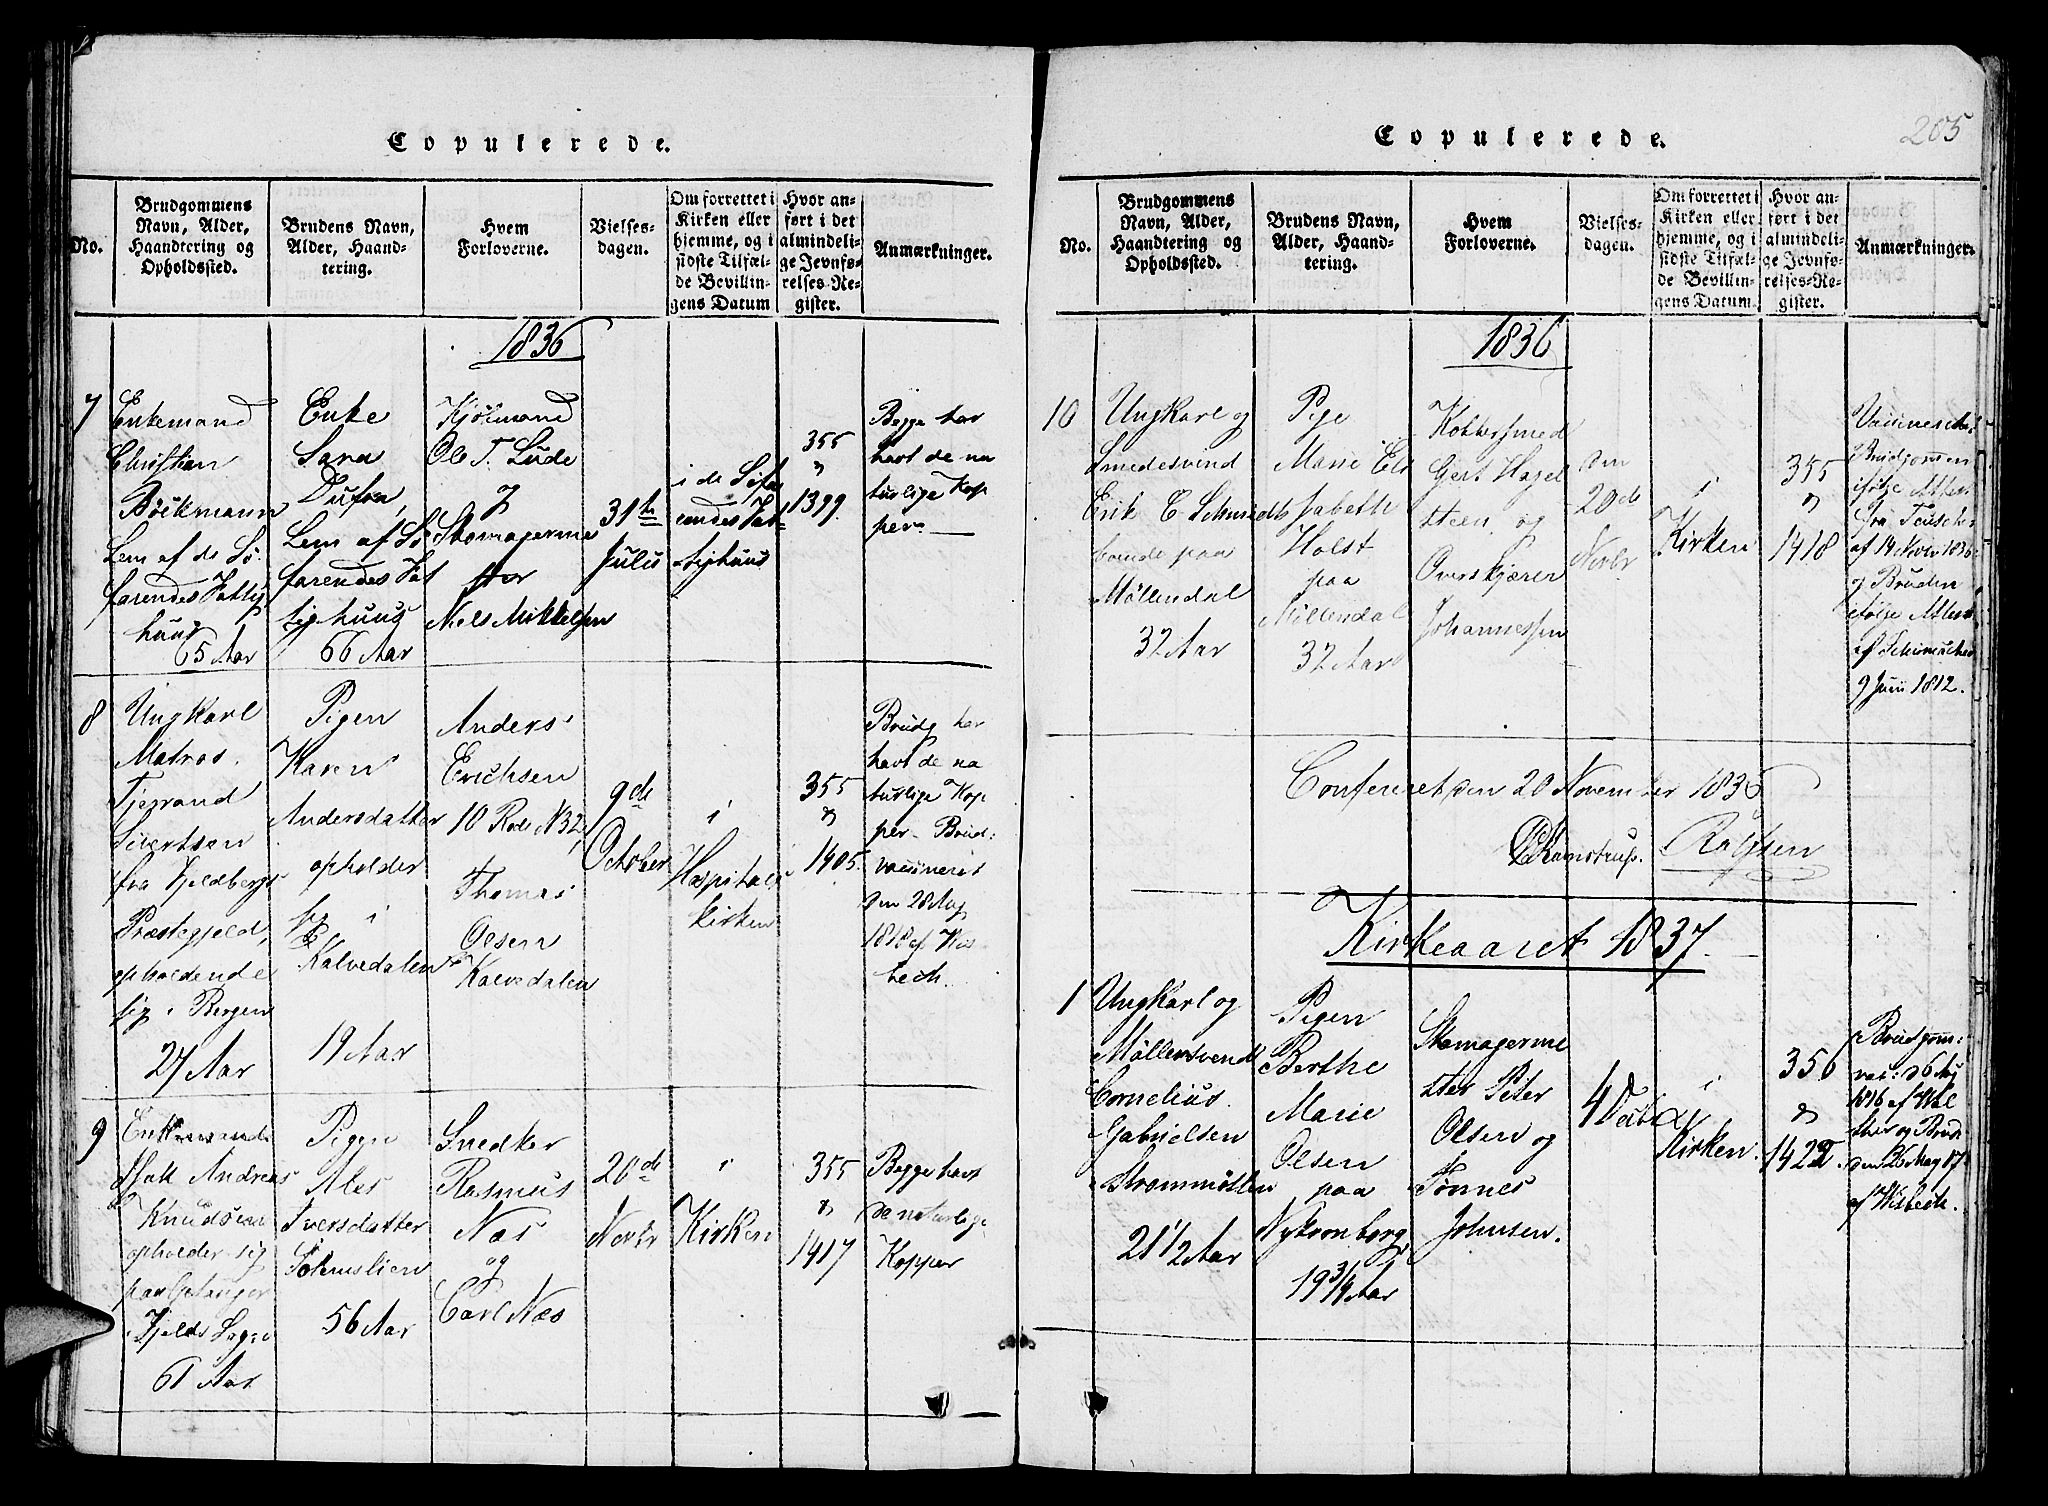 Copulerede.
No.
Brudgommens Navn, Alder, Haandtering og Opholdssted.
Brudens Navn, Alder, Haandtering.
Hvem Forloverne.
Vielsesdagen.
Om forrettet i Kirken eller hjemme, og i sidste Tilfælde Bevillingens Datum
Hvor anført i det almindelige Jevnførelses-Register.
Anmærkninger.
1836
7
Enkemand
Christian
Böckmann
Lem af de Sö-
farendes Fattig
huus
65 Aar
Enke
Sara
Lem af Sö
farendes Fat
tighuus
66 Aar
Kjölmand
Ole T. Lude
og
Skomagerme
ster
Niels Mikkelsen
31te
Julii
i de Söfar
endes Fat-
tighuus
355
1399
Begge har
havt de na
turlige Kop
per
8
Ungkarl
Matros
Sivertsen
fra Kjeldbergs
Præstegjeld,
opholdende
sig i Bergen
27 Aar
Pigen
Karen
Andersdatter
opholder
sig i
Kalvedalen
19 Aar
Anders
Erichsen
10 Rode N 32,
Thomas
Olsen
Kalvedalen
9de
October
i
Hospitals
kirken
355
1405.
Brudg har
havt de na
turlige Kop
per - Brud:
vaccineret
den 28 Aug
1818 af Wis
bech.
9
Enkemand
Isak Andreas
Knudsen
opholder sig
61 Aar
Pigen
Ales
Iversdatter
56 Aar
Snedker
Rasmus
Næs
og
Carl Næs
20de
Novbr
i
Kirken
355
1417
Begge havt
de naturlige
Kopper
Copulerede.
205
No.
Brudgommens Navn, Alder, Haandtering og Opholdssted.
Brudens Navn, Alder, Haandtering.
Hvem Forloverne.
Vielsesdagen.
Om forrettet i Kirken eller hjemme, og i sidste Tilfælde Bevillingens Datum.
Hvor anført i det almindelige Jevnførelses-Register.
Anmærkninger.
1836
10
Ungkarl og
Smedesvend
Erik C Schmidt
boende paa
Möllendal
32 Aar
Pige
Marie Eli
sabeth
Holst
paa
Möllendal
32 Aar
Kobbersmed
Gert Hagel
steen og
Overskjærer
Johannessen
den
20de
Novbr
i
Kirken
355
1418
Brudgommen
ifølge Attest
af 14 Novbr 1836
og Bruden
ifølge Attest
9 Juni 1812.
Confereret den 20 November 1836
Kirkeaaret 1837.
1
Ungkarl og
Möllersvend
Cornelius
Gabrielsen
Strömmöllen
21 1/2 Aar
Pigen
Berthe
Marie
Olsen
paa
Nykronborg
19 3/4 Aar
Skomagerme
ster Peter
Olsen og
Tönnes
Johnsen.
4 Decbr
i
Kirken.
356
1422.
Brudgom:
vac: d 6 Aug
1816 af Wal
ther og Brud
den 26 May 17
af Wisbech.